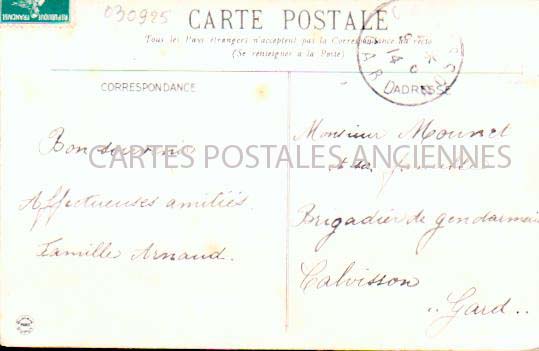 REPUBLIQUE FRANÇAISE
030925
CARTE POSTALE
Tous les Pays étrangers n'acceptent pas la Correspondance au recto
(Se renseigner à la Poste)
GARD
CORRESPONDANCE
ADRESSE
Bon souvenir
Affectueuses amitiés.
Famille Arnaud.
Monsieur Mounet
et sa famille
Brigadier de gendarmerie
Calvisson
Gard
CARTES POSTALES ANCIENNES